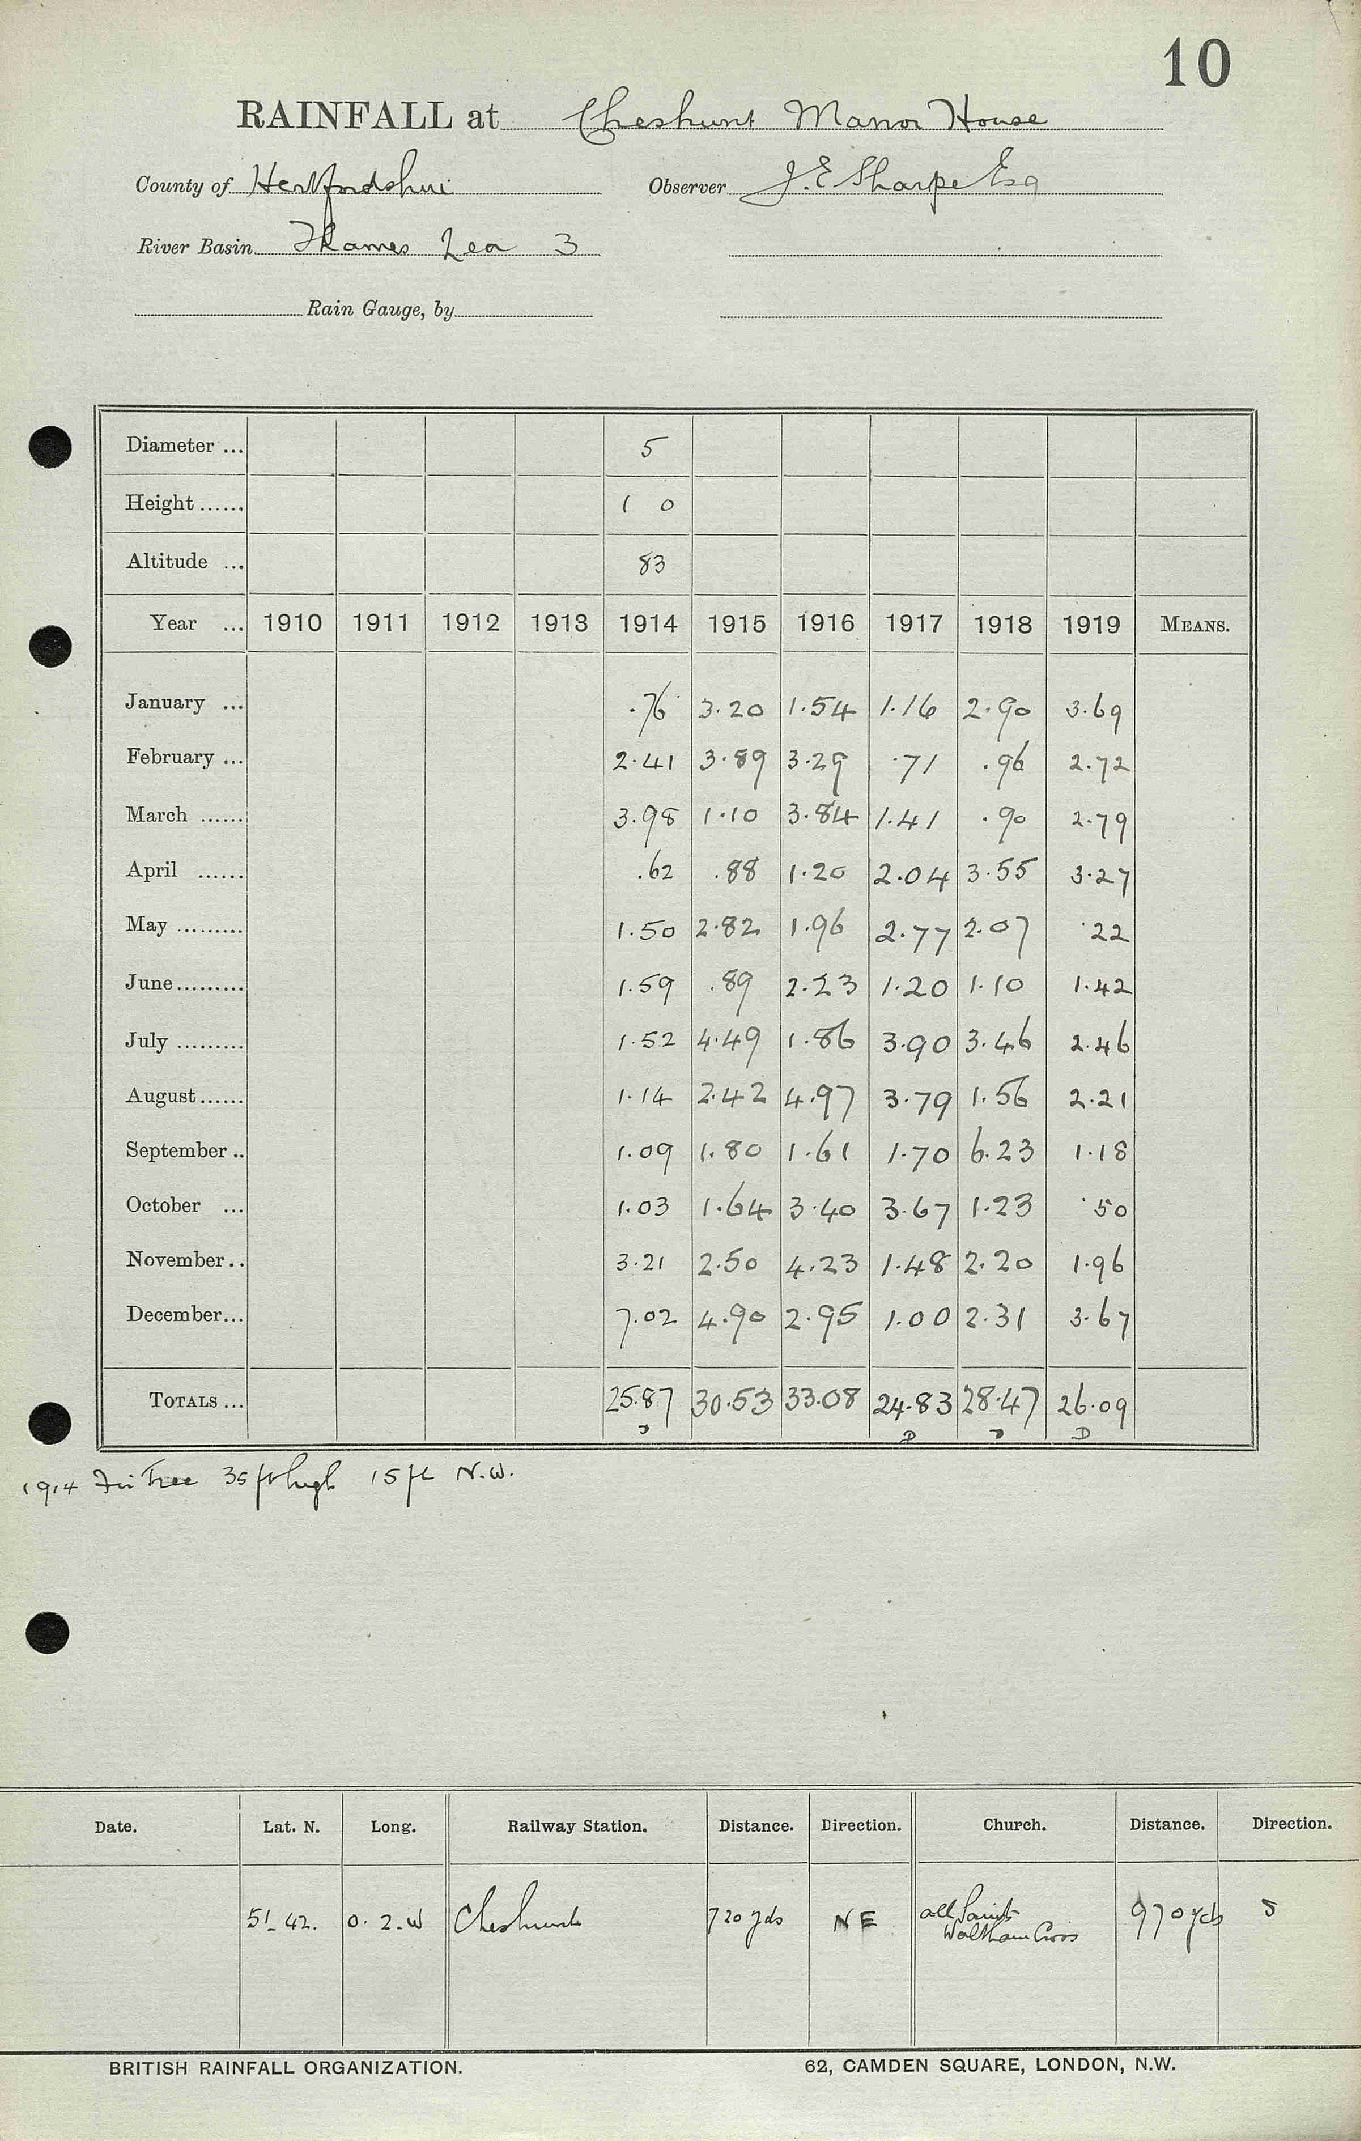 10
RAINFALL at Cheshunt Manor House
County of Hertfordshire Observer J. E Sharpe Esq
River Basin Thames Lea 3
Rain Gauge, by
Diameter ... 5
Height ...... 1 0
Altitude ... 83
Year ... 1910 1911 1912 1913 1914 1915 1916 1917 1918 1919 MEANS.
January ... .76 3.20 1.54 1.16 2.90 3.69
February ... 2.41 3.89 3.29 .71 .96 2.72
March ...... 3.98 1.10 3.84 1.41 .90 2.79
April ...... .62 .88 1.20 2.04 3.55 3.27
May ......... 1.50 2.82 1.96 2.77 2.07 .22
June ......... 1.59 .89 2.23 1.20 1.10 1.42
July ......... 1.52 4.49 1.86 3.90 3.46 2.46
August ...... 1.14 2.42 4.97 3.79 1.56 2.21
September .. 1.09 1.80 1.61 1.70 6.23 1.18
October ... 1.03 1.64 3.40 3.67 1.23 .50
November .. 3.21 2.50 4.23 1.48 2.20 1.96
December ... 7.02 4.90 2.95 1.00 2.31 3.67
TOTALS ... 25.87 30.53 33.08 24.83 28.47 26.09
D D D D
1914 Fir Tree 35 ft high 15 ft N.W.
Date. Lat. N. Long. Railway Station. Distance. Direction. Church. Distance. Direction.
51. 42. 0. 2. W Cheshunt 720 yds NE all Saints 970 yds S
Waltham Cross
BRITISH RAINFALL ORGANIZATION. 62, CAMDEN SQUARE, LONDON, N.W.